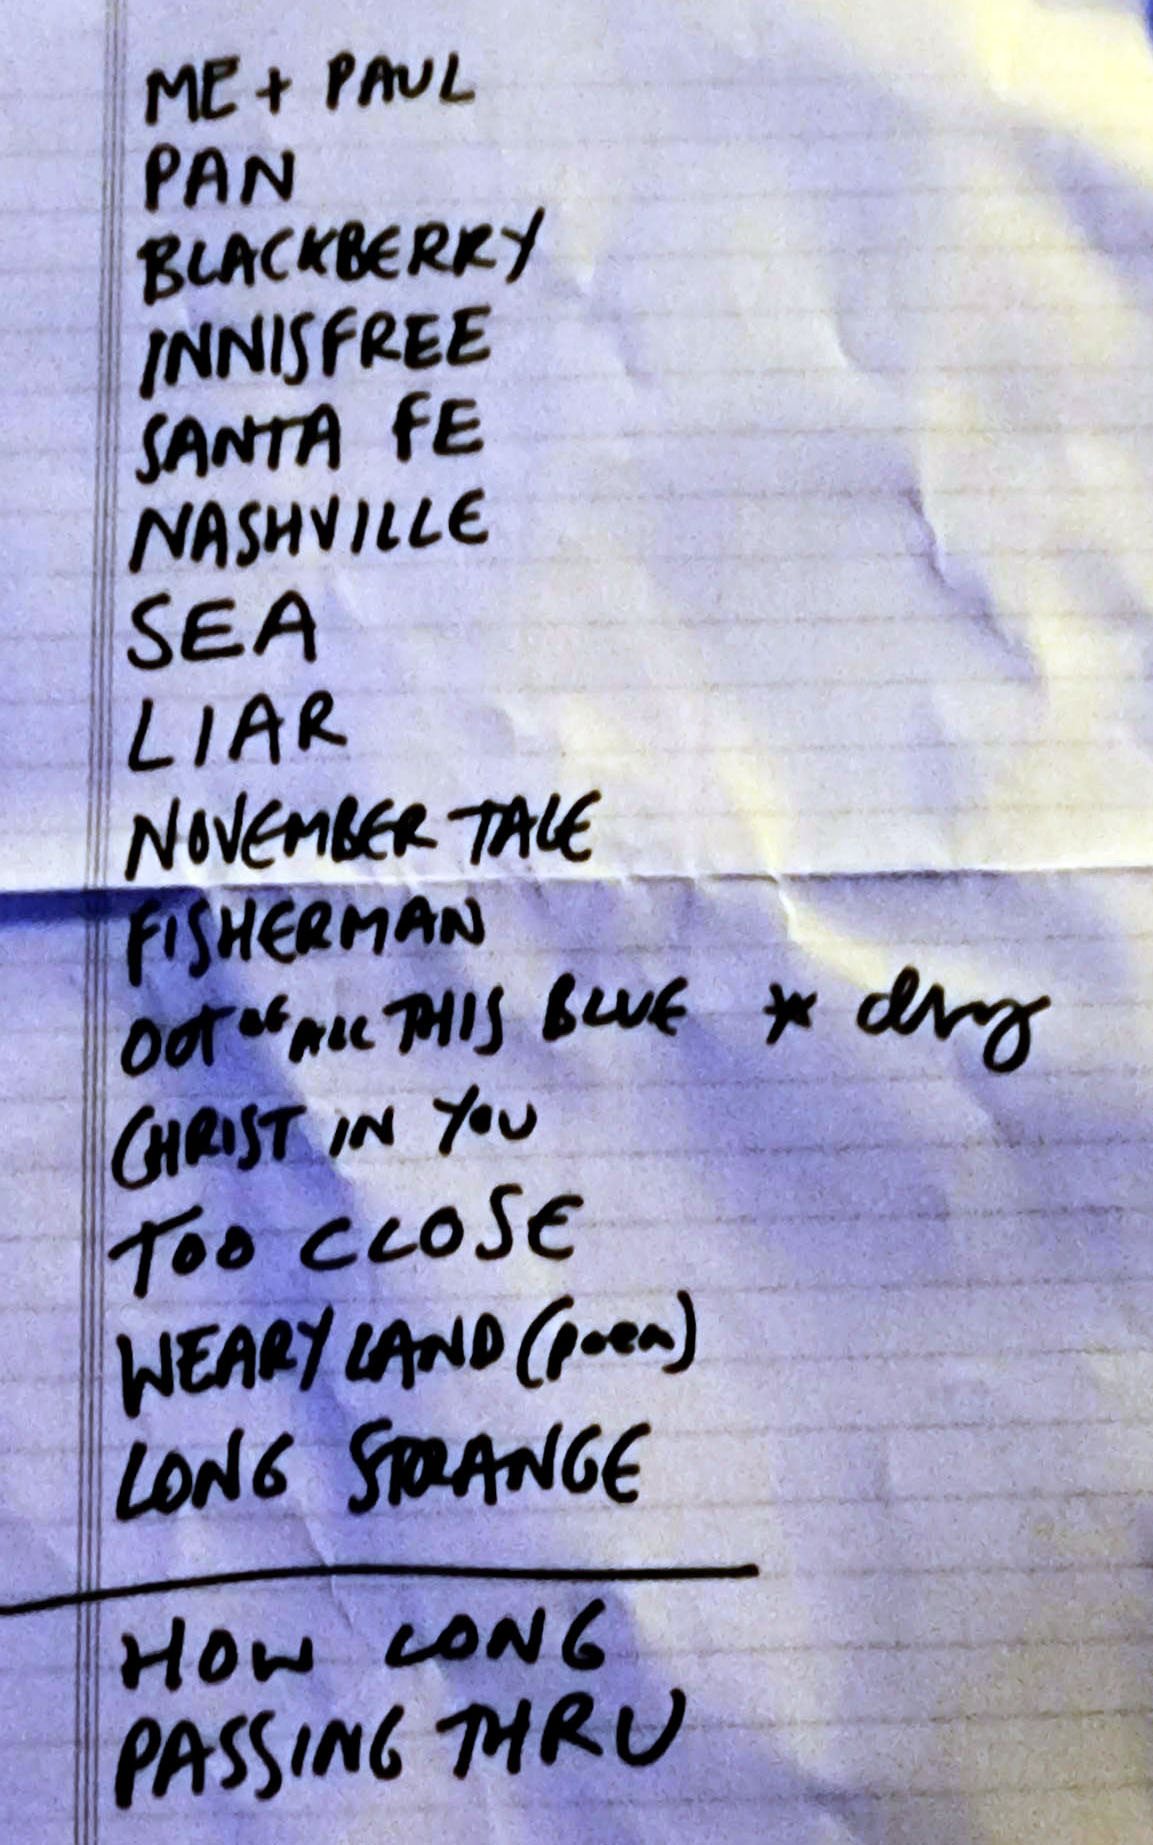 ME + PAUL
PAN
BLACKBERRY
INNISFREE
SANTA FE
NASHVILLE
SEA
LIAR
NOVEMBER TALE
FISHERMAN
OUT OF ALL THIS BLUE *
CHRIST IN YOU
TOO CLOSE
WEARY LAND (poem)
LONG STRANGE
HOW LONG
PASSING THRU